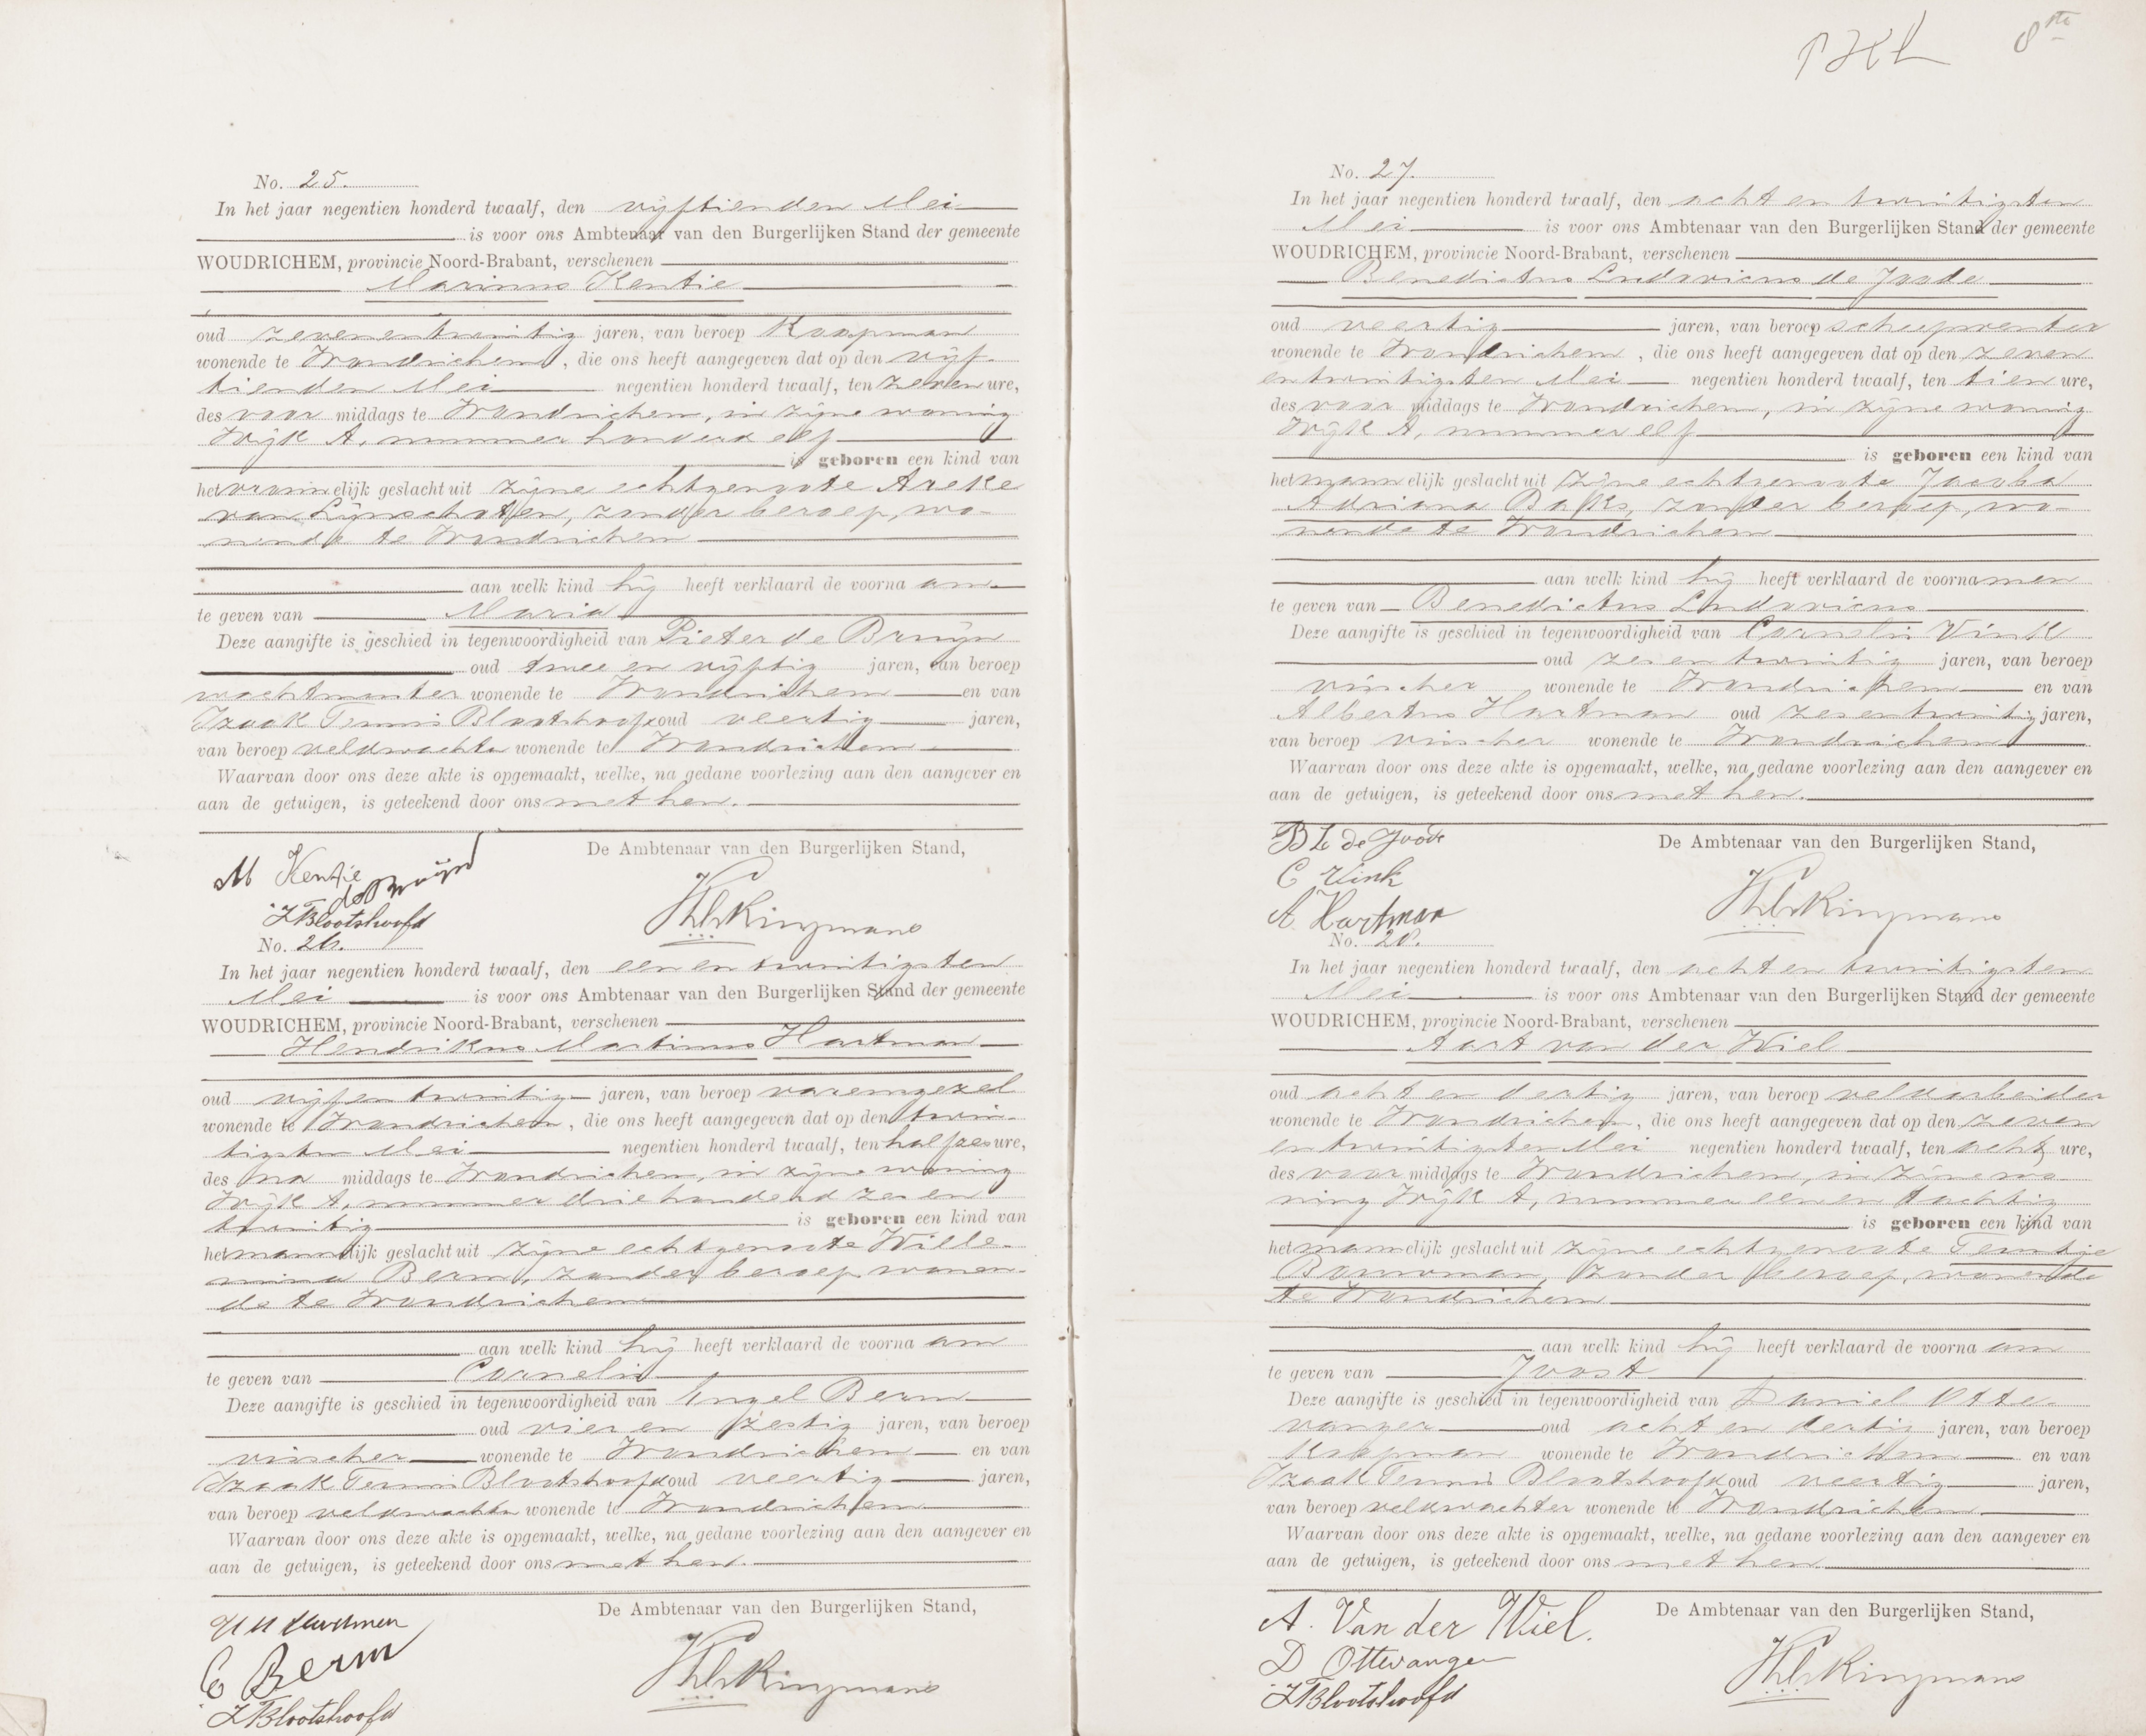 8ste
No. 25.
In het jaar negentien honderd twaalf, den vijftienden Mei
is voor ons Ambtenaar van den Burgerlijken Stand der gemeente
WOUDRICHEM, provincie Noord-Brabant, verschenen
Marinus Kentie
oud zevenentwintig jaren, van beroep Koopman
wonende te Woudrichem, die ons heeft aangegeven dat op den vijf-
tienden Mei negentien honderd twaalf, ten zeven ure,
des voor middags te Woudrichem, in zijne woning
Wijk A, nummer honderd elf
is geboren een kind van
het vrouwelijk geslacht uit zijne echtgenoote Aeeke
van Lijnschoten, zonder beroep, wo-
nende te Woudrichem
aan welk kind hij heeft verklaard de voorna am
te geven van Maria
Deze aangifte is geschied in tegenwoordigheid van Pieter de Bruijn
oud twee en vijftig jaren, van beroep
wonende te Woudrichem en van
Izaak Teunis Blootshoofd oud veertig jaren,
van beroep veldwachter wonende te Woudrichem
Waarvan door ons deze akte is opgemaakt, welke, na gedane voorlezing aan den aangever en
aan de getuigen, is geteekend door ons met hen.
De Ambtenaar van den Burgerlijken Stand,
M Kentie
de Bruijn
I T Blootshoofd
No. 26.
In het jaar negentien honderd twaalf, den een en twintigsten
Mei is voor ons Ambtenaar van den Burgerlijken Stand der gemeente
WOUDRICHEM, provincie Noord-Brabant, verschenen
Hendrikus Martinus Hartman
oud vijf en twintig jaren, van beroep varensgezel
wonende te Woudrichem, die ons heeft aangegeven dat op den twin-
tigsten Mei negentien honderd twaalf, ten half zes ure,
des na middags te Woudrichem, in zijne woning
Wijk A, nummer driehonderd zes en
twintig is geboren een kind van
het mannelijk geslacht uit zijne echtgenoote Wille-
mina Berm, zonder beroep wonen-
de te Woudrichem
aan welk kind hij heeft verklaard de voorna am
te geven van Cornelis
Deze aangifte is geschied in tegenwoordigheid van Engel Berm
oud vier en zestig jaren, van beroep
visscher wonende te Woudrichem en van
Izaak Teunis Blootshoofd oud veertig jaren,
van beroep veldwachter wonende te Woudrichem
Waarvan door ons deze akte is opgemaakt, welke, na gedane voorlezing aan den aangever en
aan de getuigen, is geteekend door ons met hen.
De Ambtenaar van den Burgerlijken Stand,
H M Hartman
E Berm
I T Blootshoofd
No. 27.
In het jaar negentien honderd twaalf, den acht en twintigsten
Mei is voor ons Ambtenaar van den Burgerlijken Stand der gemeente
WOUDRICHEM, provincie Noord-Brabant, verschenen
Benedictus Ludovicus de Joode
oud veertig jaren, van beroep scheepventer
wonende te Woudrichem, die ons heeft aangegeven dat op den zeven
en twintigsten Mei negentien honderd twaalf, ten tien ure,
des voor middags te Woudrichem, in zijne woning
Wijk A, nummer elf
is geboren een kind van
het mannelijk geslacht uit zijne echtgenoote Jacoba
Adriana Baks, zonder beroep, wo-
nende te Woudrichem
aan welk kind hij heeft verklaard de voorna men
te geven van Benedictus Ludovicus
Deze aangifte is geschied in tegenwoordigheid van Cornelis Vink
oud zes en twintig jaren, van beroep
visscher wonende te Woudrichem en van
Albertus Hartman oud zes en twintig jaren,
van beroep visscher wonende te Woudrichem
Waarvan door ons deze akte is opgemaakt, welke, na gedane voorlezing aan den aangever en
aan de getuigen, is geteekend door ons met hen.
De Ambtenaar van den Burgerlijken Stand,
B L de Joode
C Vink
A. Hartman
No. 28.
In het jaar negentien honderd twaalf, den acht en twintigsten
Mei is voor ons Ambtenaar van den Burgerlijken Stand der gemeente
WOUDRICHEM, provincie Noord-Brabant, verschenen
Aart van der Wiel
oud acht en dertig jaren, van beroep veldarbeider
wonende te Woudrichem, die ons heeft aangegeven dat op den zeven
en twintigsten Mei negentien honderd twaalf, ten acht ure,
des voor middags te Woudrichem, in zijne wo-
ning Wijk A, nummer een en tachtig
is geboren een kind van
het mannelijk geslacht uit zijne echtgenoote Teuntje
Bouwman, zonder beroep, wonende
te Woudrichem
aan welk kind hij heeft verklaard de voorna am
te geven van Joost
Deze aangifte is geschied in tegenwoordigheid van Daniel Otte-
vanger oud acht en dertig jaren, van beroep
Koopman wonende te Woudrichem en van
Izaak Teunis Blootshoofd oud veertig jaren,
van beroep veldwachter wonende te Woudrichem
Waarvan door ons deze akte is opgemaakt, welke, na gedane voorlezing aan den aangever en
aan de getuigen, is geteekend door ons met hen
De Ambtenaar van den Burgerlijken Stand,
A. Van der Wiel.
D Ottevanger
I T Blootshoofd